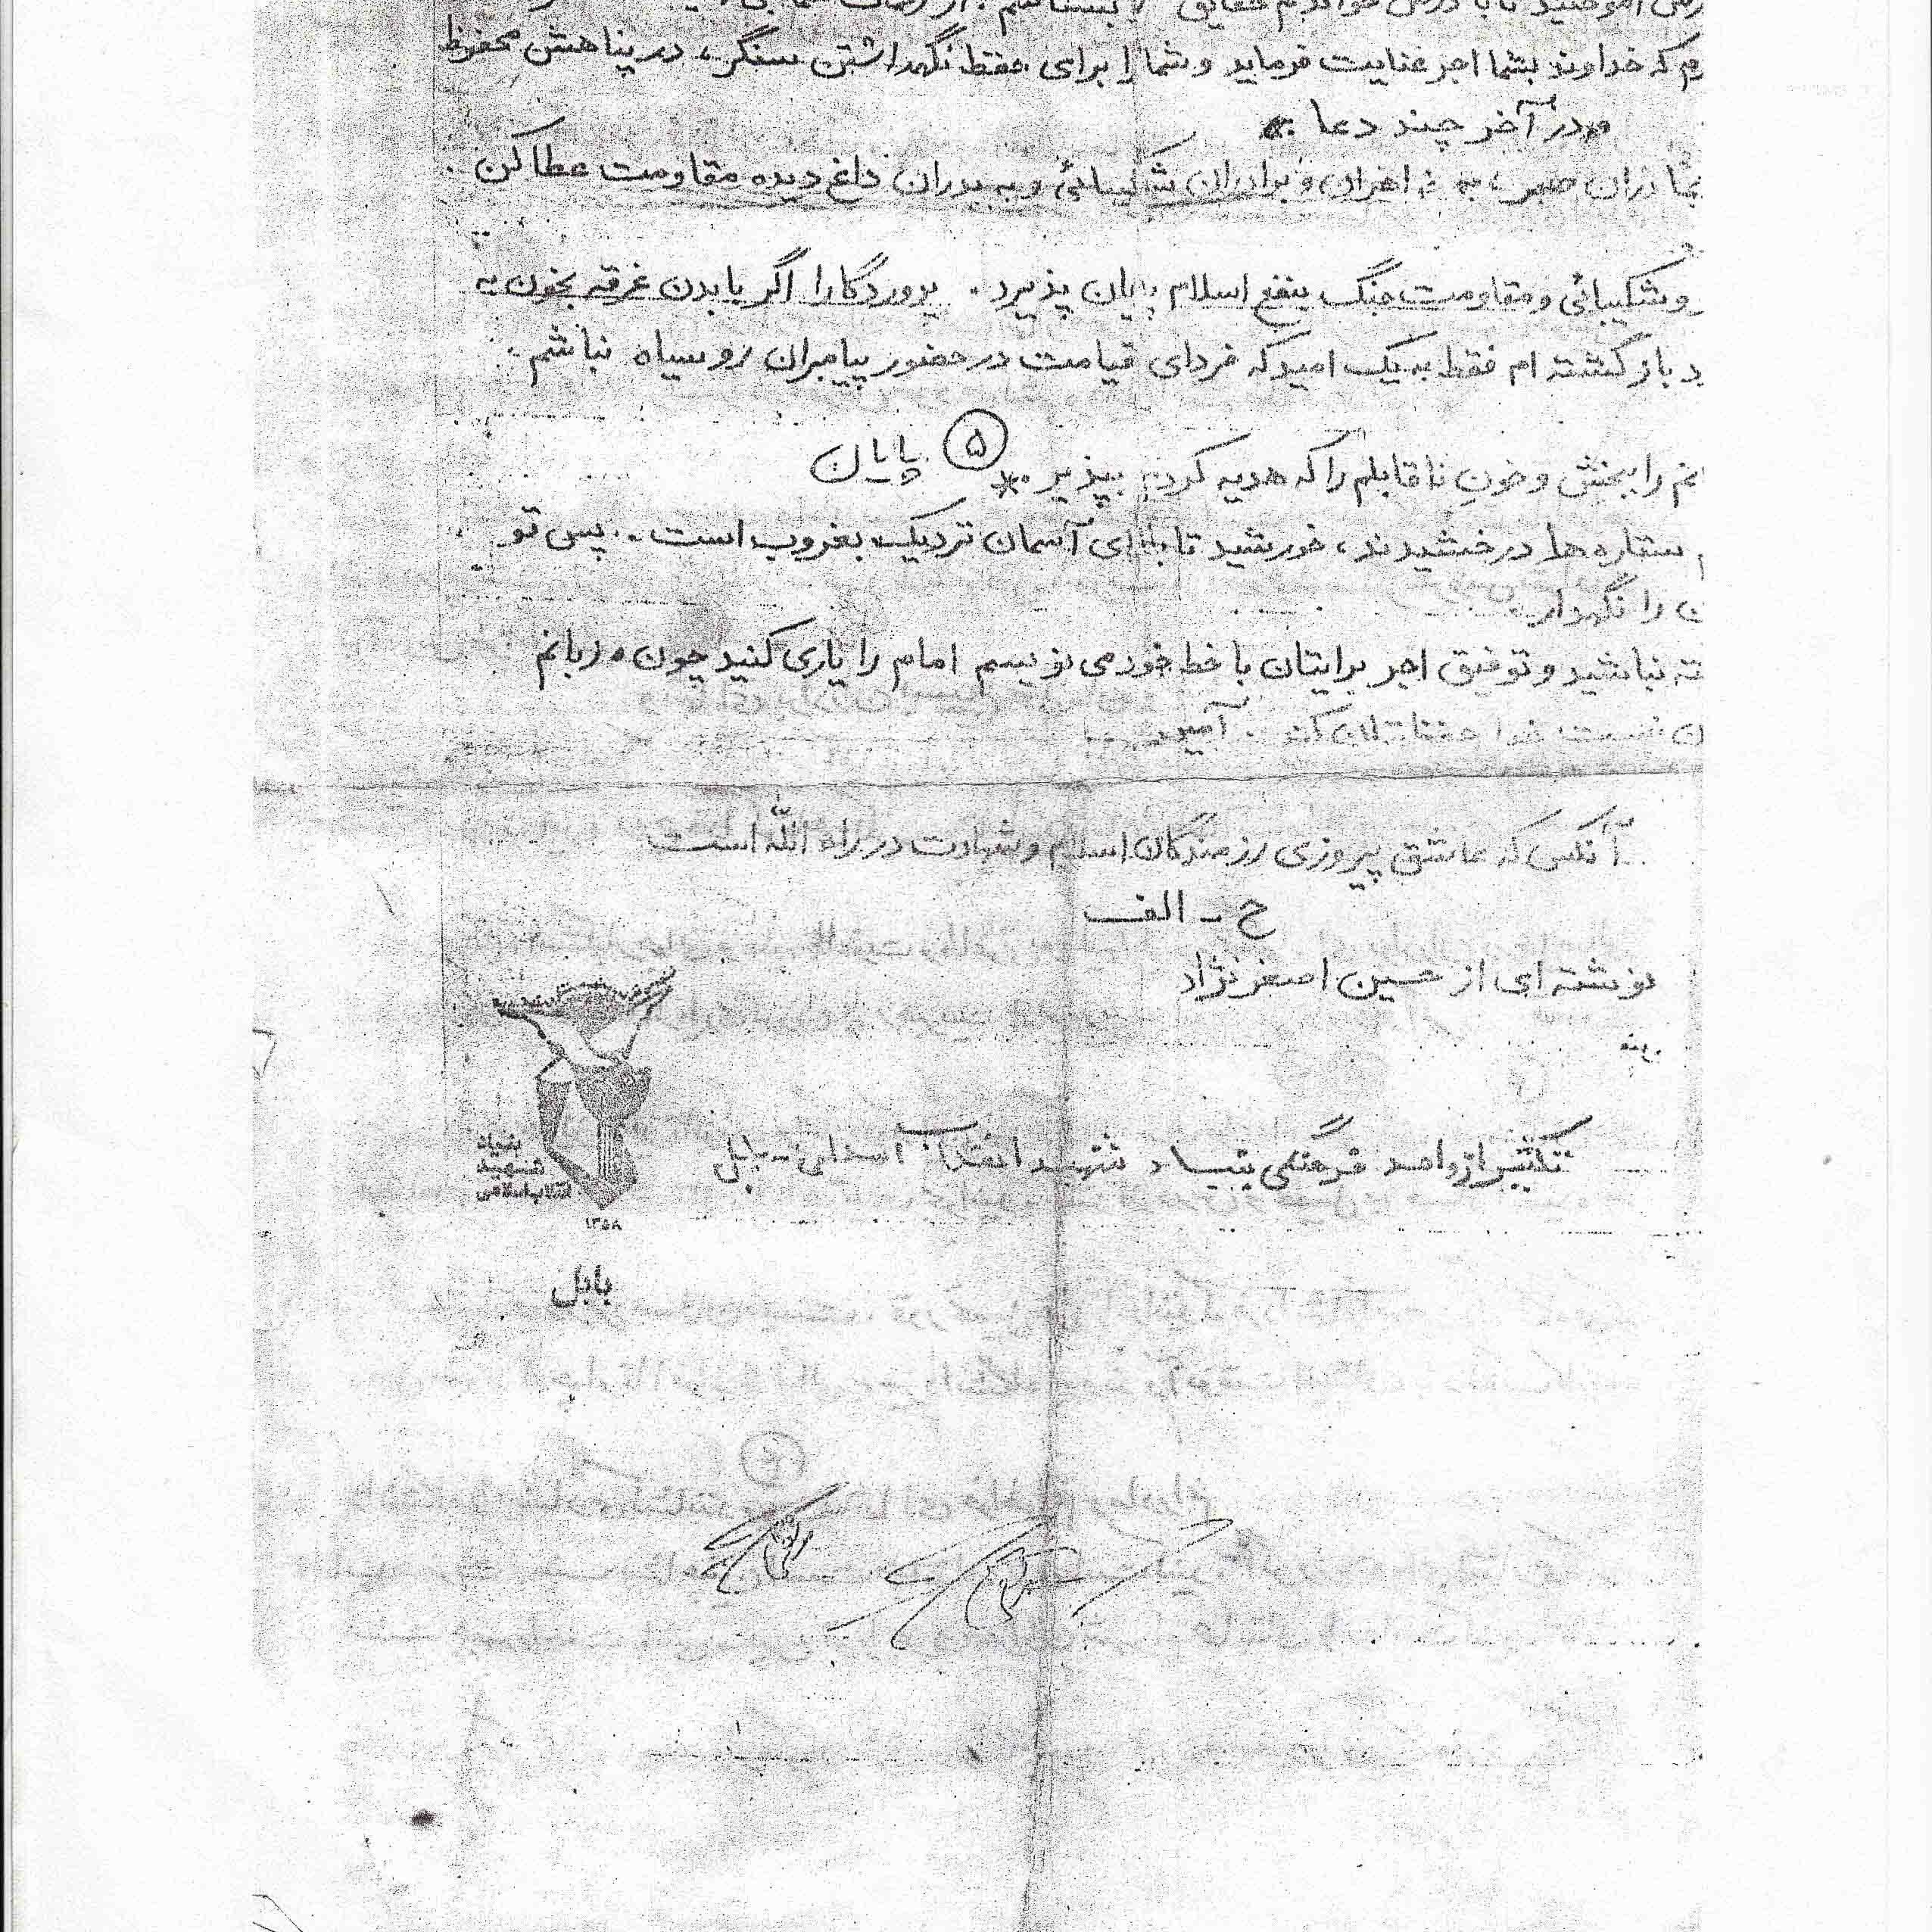 که خداوند بشما اجر عنایت فرماید و شما را برای حفظ نگهداشتن سنگر، در پناهش محفوظ
در آخر چند دعا
صبر، به خواهران و برادران شکیبائی و به پدران داغ دیده مقاومت عطا کن
و شکیبائی و مقاومت جنگ بنفع اسلام پایان پذیرد. پروردگارا اگر با بدن غرقه بخون به
باز گشته ام فقط به یک امید که فردای قیامت در حضور پیامبران رو سیاه نباشم.
را ببخش و خون ناقابلم را که هدیه کردم بپذیر. * ۵ پایان
ستاره ها درخشیدند، خورشید تا بالای آسمان نزدیک بغروب است. پس تو
را نگهدار.
نباشید و توفیق اجر برایتان با خط خود می نویسم امام را یاری کنید چون زبانم
خدا حفظتان کند. آمین
آنکس که عاشق پیروزی رزمندگان اسلام و شهادت در راه الله است
ح - الف
نوشته ای از حسین اصغرنژاد
تکثیر از واحد فرهنگی بنیاد شهید انقلاب اسلامی - بابل
بنیاد
شهید
انقلاب اسلامی
۱۳۵۸
بابل